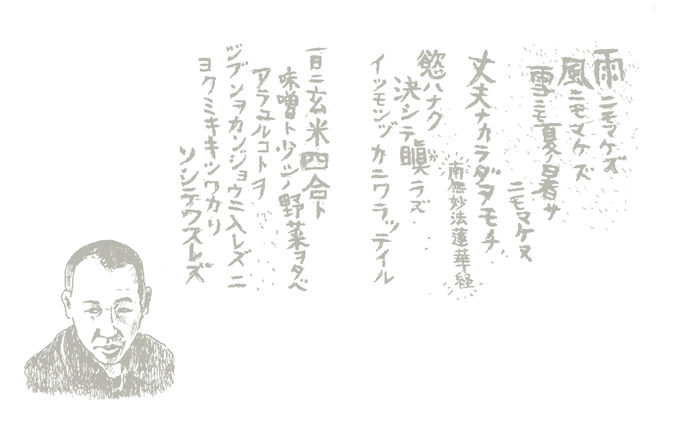 雨ニモマケズ
風ニモマケズ
雪ニモ夏ノ暑サ
ニモマケヌ
丈夫ナカラダヲモチ
南無妙法蓮華経
慾ハナク
決シテ瞋ラズ
イツモシヅカニワラッテイル
一日ニ玄米四合ト
味噌ト少シノ野菜ヲタベ
アラユルコトヲ
ジブンヲカンジョウニ入レズニ
ヨクミキキシワカリ
ソシテワスレズ